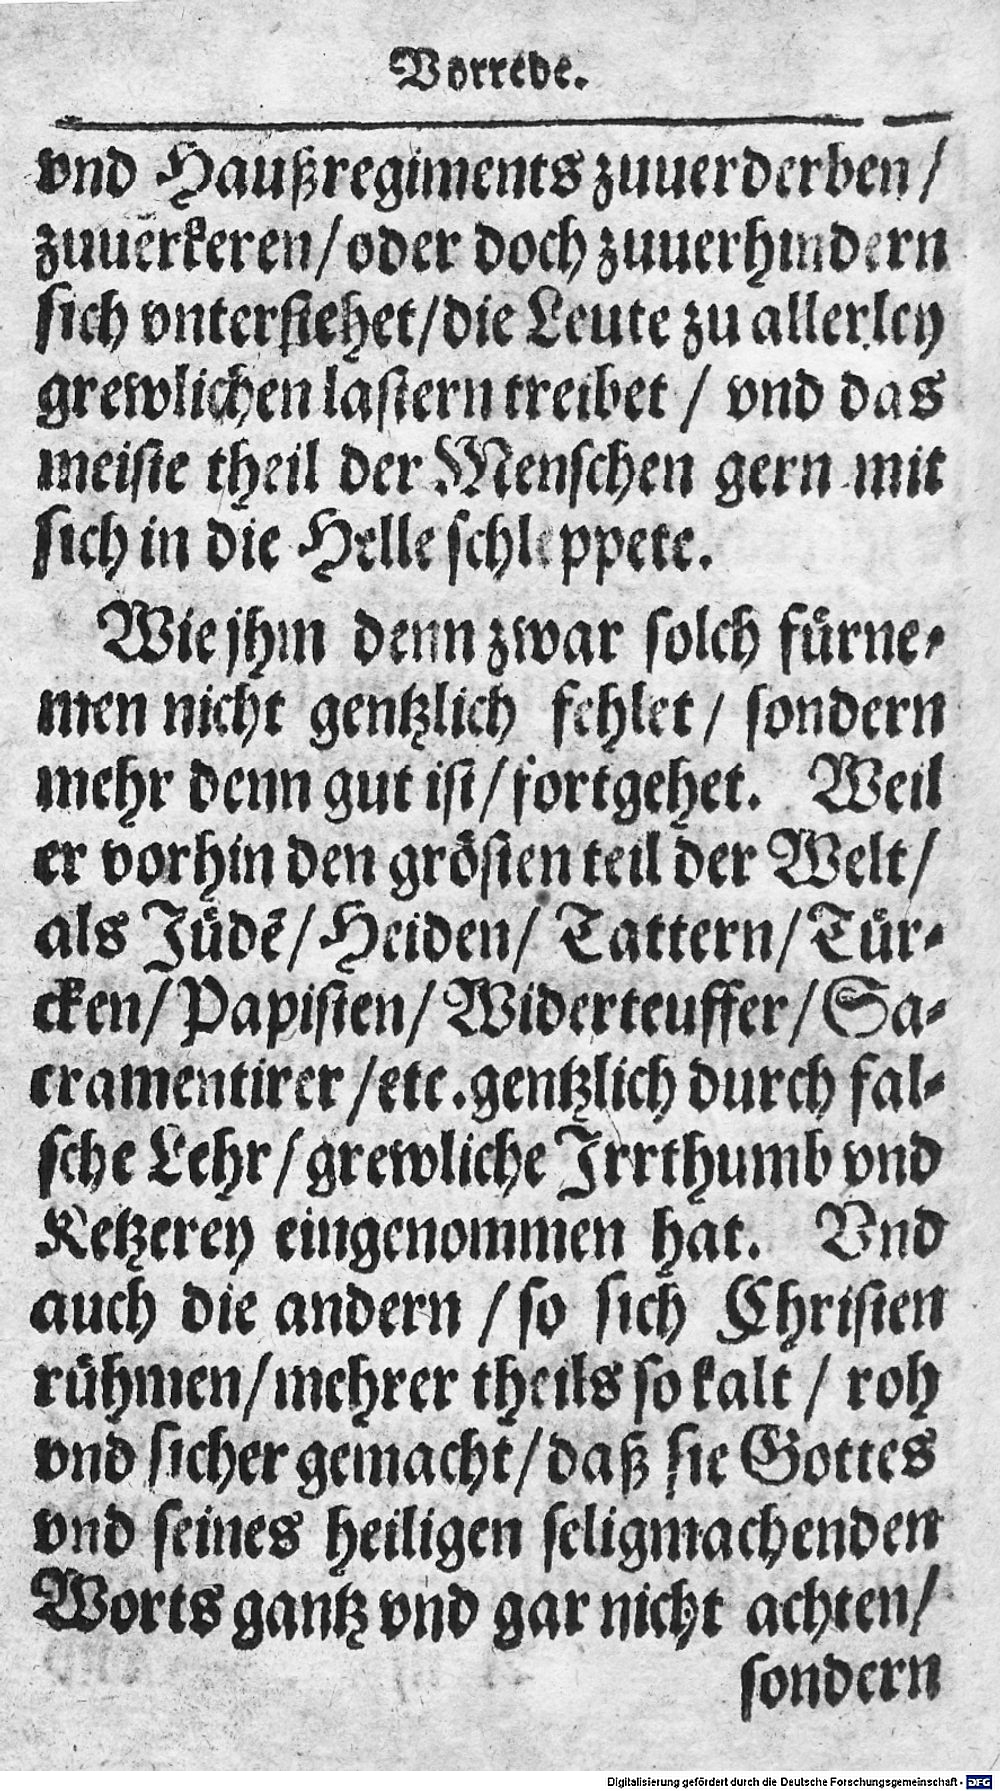 Vorrede.
vnd Haußregiments zuuerderben /
zuuerkeren / oder doch zuuerhindern
sich vnterstehet / die Leute zu allerley
grewlichen lastern treibet / vnd das
meiste theil der Menschen gern mit
sich in die Helle schleppete.
Wie jhm denn zwar solch fürne-
men nicht gentzlich fehlet / sondern
mehr denn gut ist / fortgehet. Weil
er vorhin den grösten teil der Welt /
als Jüdē / Heiden / Tattern / Tür-
cken / Papisten / Widerteuffer / Sa-
cramentirer / etc. gentzlich durch fal-
sche Lehr / grewliche Irrthumb vnd
Ketzerey eingenommen hat. Vnd
auch die andern / so sich Christen
rühmen / mehrer theils so kalt / roh
vnd sicher gemacht / daß sie Gottes
vnd seines heiligen seligmachenden
Worts gantz vnd gar nicht achten /
sondern
Digitalisierung gefördert durch die Deutsche Forschungsgemeinschaft - DFG